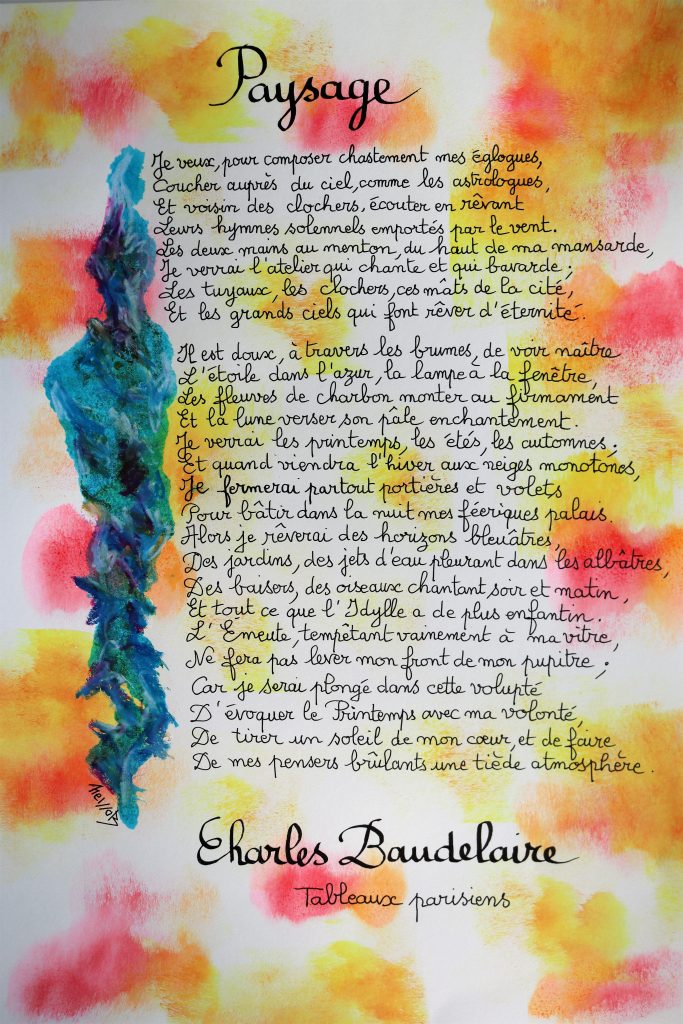 Paysage
Je veux, pour composer chastement mes églogues,
Coucher auprès du ciel, comme les astrologues,
Et voisin des clochers, écouter en rêvant
Leurs hymnes solennels emportés par le vent.
Les deux mains au menton, du haut de ma mansarde,
Je verrai l'atelier qui chante et qui bavarde ;
Les tuyaux, les clochers, ces mâts de la cité,
Et les grands ciels qui font rêver d'éternité.
Il est doux, à travers les brumes, de voir naître
L'étoile dans l'azur, la lampe à la fenêtre,
Les fleuves de charbon monter au firmament
Et la lune verser son pâle enchantement.
Je verrai les printemps, les étés, les automnes ;
Et quand viendra l'hiver aux neiges monotones,
Je fermerai partout portières et volets
Pour bâtir dans la nuit mes féeriques palais.
Alors je rêverai des horizons bleuâtres,
Des jardins, des jets d'eau pleurant dans les albâtres,
Des baisers, des oiseaux chantant soir et matin,
Et tout ce que l'Idylle a de plus enfantin.
L'Émeute, tempêtant vainement à ma vitre,
Ne fera pas lever mon front de mon pupitre ;
Car je serai plongé dans cette volupté
D'évoquer le Printemps avec ma volonté,
De tirer un soleil de mon cœur, et de faire
De mes pensers brûlants une tiède atmosphère.
Charles Baudelaire
Tableaux parisiens